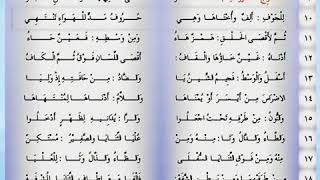 ١٠ لِلْجَوْفِ : أَلِفٌ وَأُخْتَاهَا وَهِي حُرُوفُ مَدٍّ لِلْهَوَاءِ تَنْتَهِي
١١ ثُمَّ لِأَقْصَى الْحَلْقِ : هَمْزٌ هَاءُ وَمِنْ وَسْطِهِ : فَعَيْنٌ حَاءُ
١٢ أَدْنَاهُ : غَيْنٌ خَاؤُهَا وَالْقَافُ : أَقْصَى اللِّسَانِ فَوْقُ ثُمَّ الْكَافُ
١٣ أَسْفَلُ وَالْوَسْطُ : فَجِيمُ الشِّينُ يَا وَالضَّادُ : مِنْ حَافَتِهِ إِذْ وَلِيَا
١٤ الاضْرَاسَ مِنْ أَيْسَرَ أَوْ يُمْنَاهَا وَاللَّامُ : أَدْنَاهَا لِمُنْتَهَاهَا
١٥ وَالنُّونُ : مِنْ طَرْفِهِ تَحْتُ اجْعَلُوا وَالرَّا : يُدَانِيهِ لِظَهْرٍ أَدْخَلُوا
١٦ وَالطَّاءُ وَالدَّالُ وَتَا : مِنْهُ وَمِنْ عُلْيَا الثَّنَايَا وَالصَّفِيرُ : مُسْتَكِنْ
١٧ مِنْهُ وَمِنْ فَوْقِ الثَّنَايَا السُّفْلَى وَالظَّاءُ وَالذَّالُ وَثَا : لِلْعُلْيَا
١٨